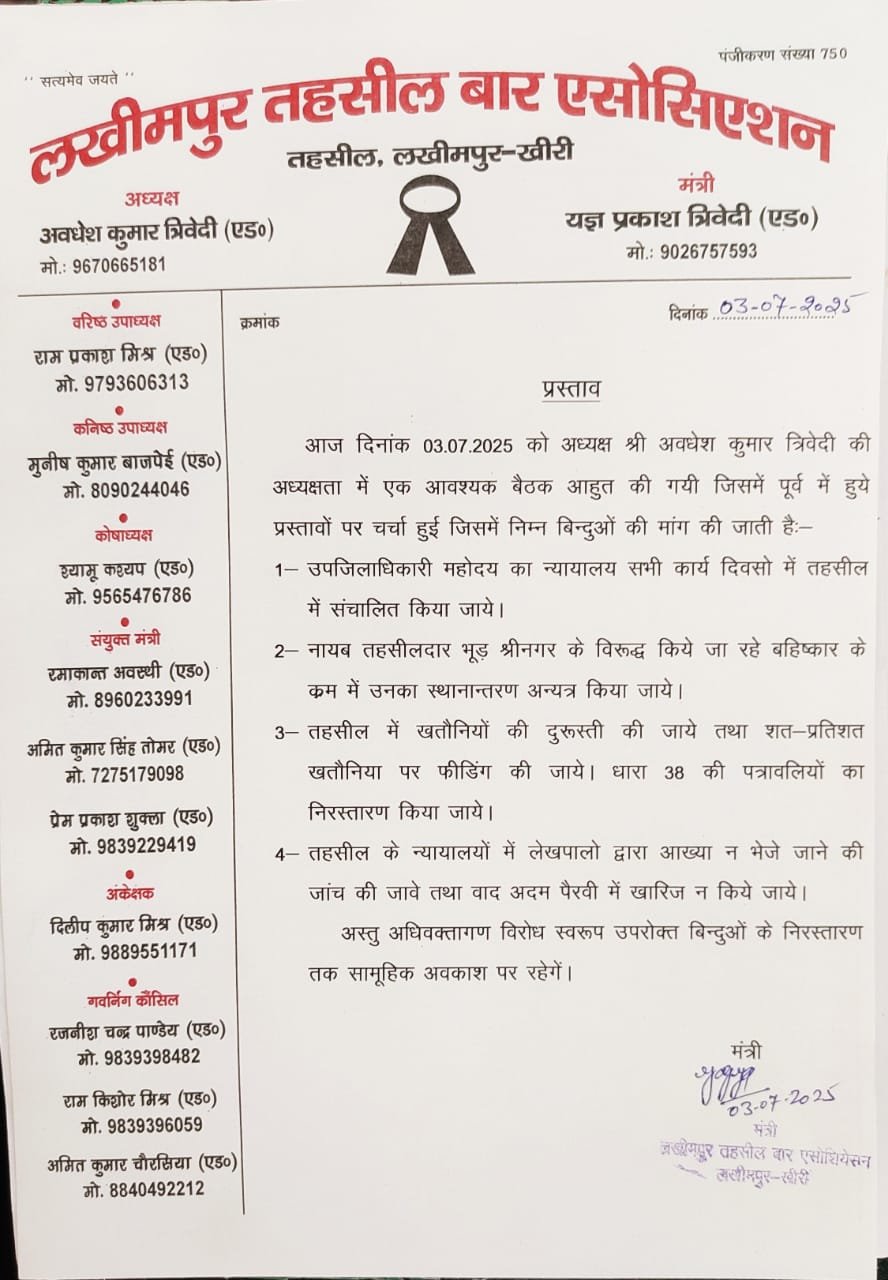 पंजीकरण संख्या 750
" सत्यमेव जयते "
लखीमपुर तहसील बार एसोसिएशन
तहसील, लखीमपुर-खीरी
अध्यक्ष
अवधेश कुमार त्रिवेदी (एड०)
मो.: 9670665181
मंत्री
यज्ञ प्रकाश त्रिवेदी (एड०)
मो.: 9026757593
वरिष्ठ उपाध्यक्ष
राम प्रकाश मिश्र (एड०)
मो. 9793606313
कनिष्ठ उपाध्यक्ष
मुनीष कुमार बाजपेई (एड०)
मो. 8090244046
कोषाध्यक्ष
श्यामू कश्यप (एड०)
मो. 9565476786
संयुक्त मंत्री
रमाकान्त अवस्थी (एड०)
मो. 8960233991
अमित कुमार सिंह तोमर (एड०)
मो. 7275179098
प्रेम प्रकाश शुक्ला (एड०)
मो. 9839229419
अंकेक्षक
दिलीप कुमार मिश्र (एड०)
मो. 9889551171
गवर्निग कौंसिल
रजनीश चन्द्र पाण्डेय (एड०)
मो. 9839398482
राम किशोर मिश्र (एड०)
मो. 9839396059
अमित कुमार चौरसिया (एड०)
मो. 8840492212
क्रमांक
दिनांक 03-07-2025
प्रस्ताव
आज दिनांक 03.07.2025 को अध्यक्ष श्री अवधेश कुमार त्रिवेदी की
अध्यक्षता में एक आवश्यक बैठक आहुत की गयी जिसमें पूर्व में हुये
प्रस्तावों पर चर्चा हुई जिसमें निम्न बिन्दुओं की मांग की जाती हैः–
1– उपजिलाधिकारी महोदय का न्यायालय सभी कार्य दिवसो में तहसील
में संचालित किया जाये।
2– नायब तहसीलदार भूड़ श्रीनगर के विरूद्ध किये जा रहे बहिष्कार के
कम में उनका स्थानान्तरण अन्यत्र किया जाये।
3– तहसील में खतौनियों की दुरूस्ती की जाये तथा शत–प्रतिशत
खतौनिया पर फीडिंग की जाये। धारा 38 की पत्रावलियों का
निरस्तारण किया जाये।
4– तहसील के न्यायालयों में लेखपालो द्वारा आख्या न भेजे जाने की
जांच की जावे तथा वाद अदम पैरवी में खारिज न किये जाये।
अस्तु अधिवक्तागण विरोध स्वरूप उपरोक्त बिन्दुओं के निरस्तारण
तक सामूहिक अवकाश पर रहेगें।
मंत्री
03-07-2025
मंत्री
लखीमपुर तहसील बार एसोशियेसन
लखीमपुर-खीरी